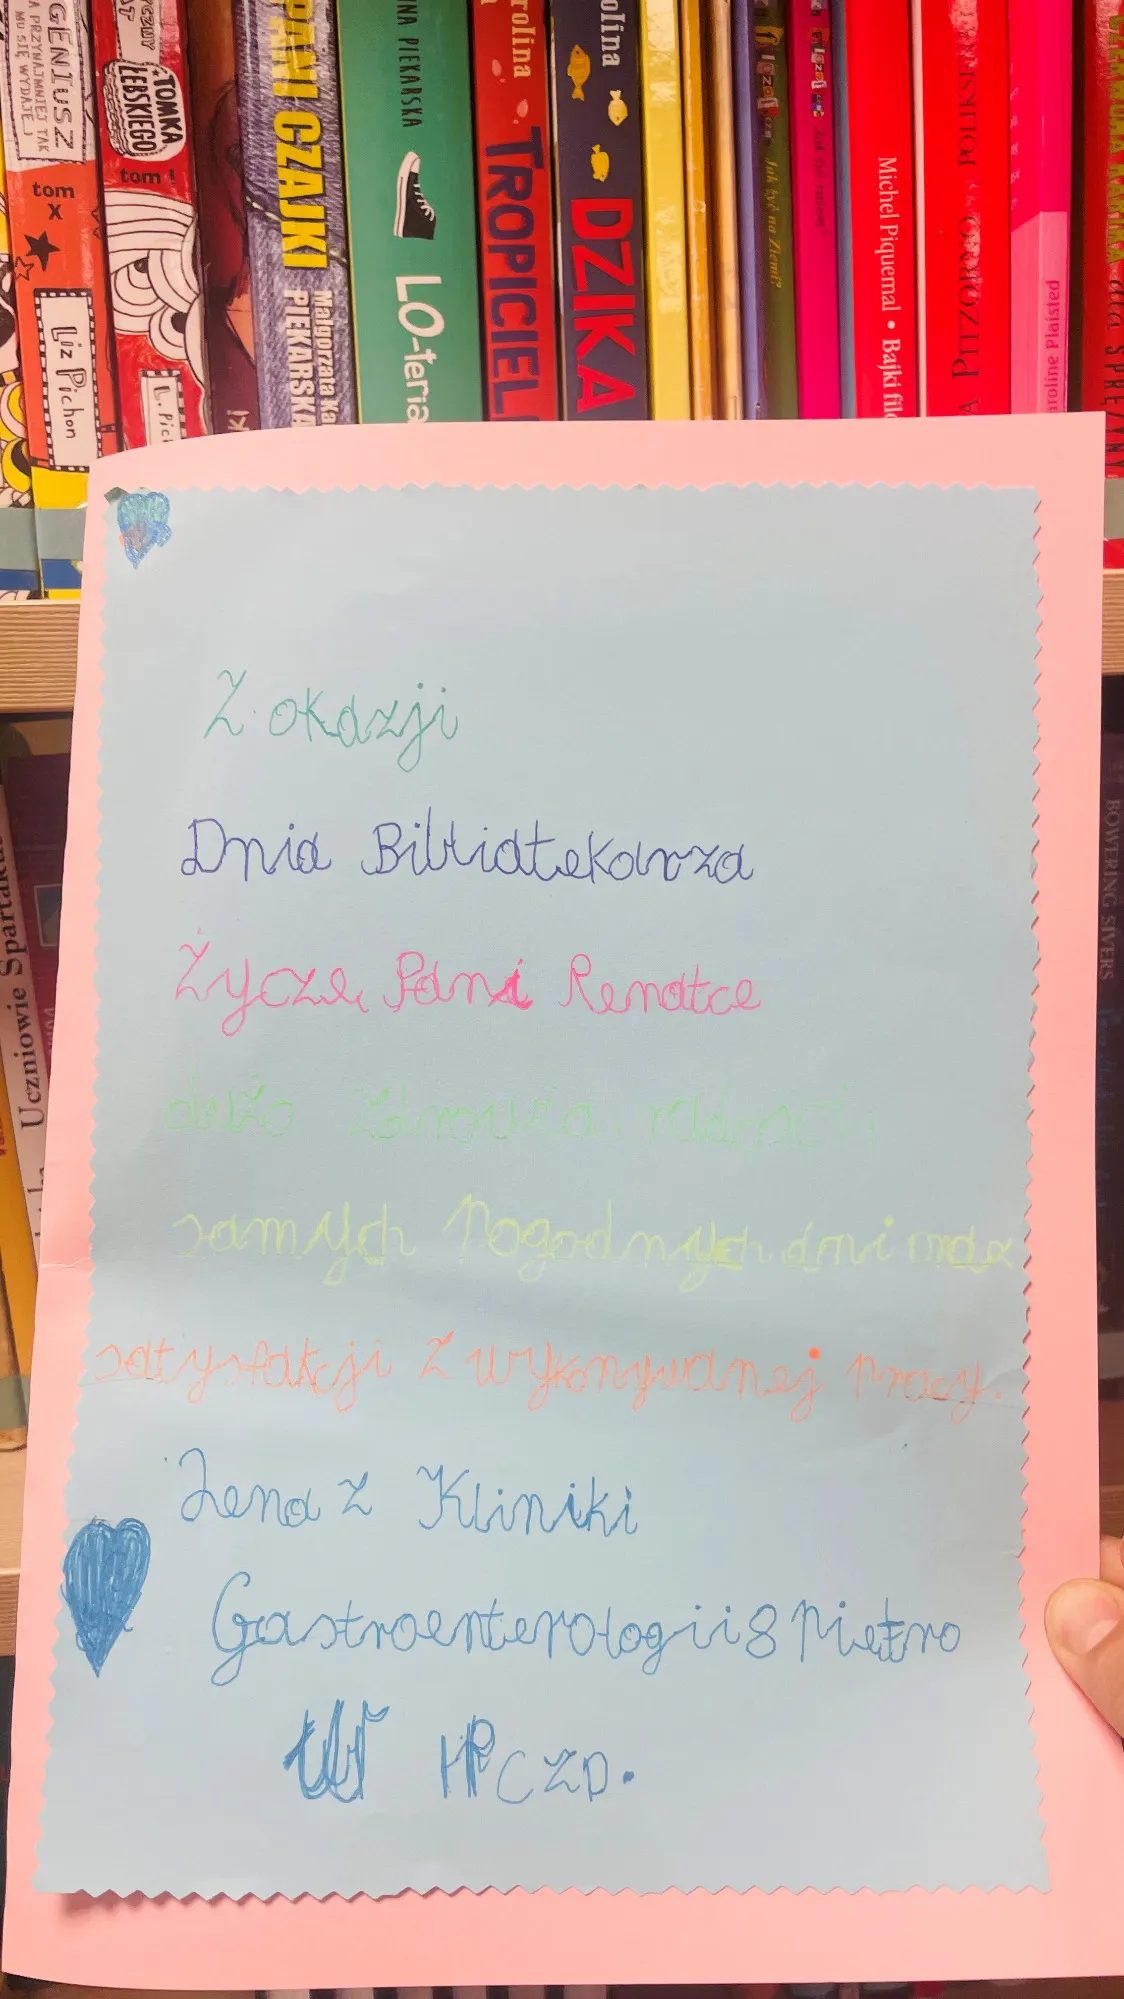 GENIUSZ
A PRZYNAJMNIEJ TAK
MU SIĘ WYDAJE...)
tom
X
Liz Pichon
TOMKA
ŁEBSKIEGO
tom I
PANI CZAJKI
Małgorzata Ka
PIEKARSKA
NA PIEKARSKA
LO-teria
rolina
TROPICIEL
olina
DZIKA
Jak żyć na Ziemi?
Jak żyć razem?
Michel Piquemal • Bajki filo
aroline Plaisted
dla SPRĘŻYN
Uczniowie Spartakusa
BOWERING SIVERS
Z okazji
Dnia Bibliotekarza
Życzę Pani Renatce
dużo zdrowia, radości,
samych Pogodnych dni oraz
satysfakcji z wykonywanej pracy.
Lena z Kliniki
Gastroenterologii 8 piętro
W IPCZD.